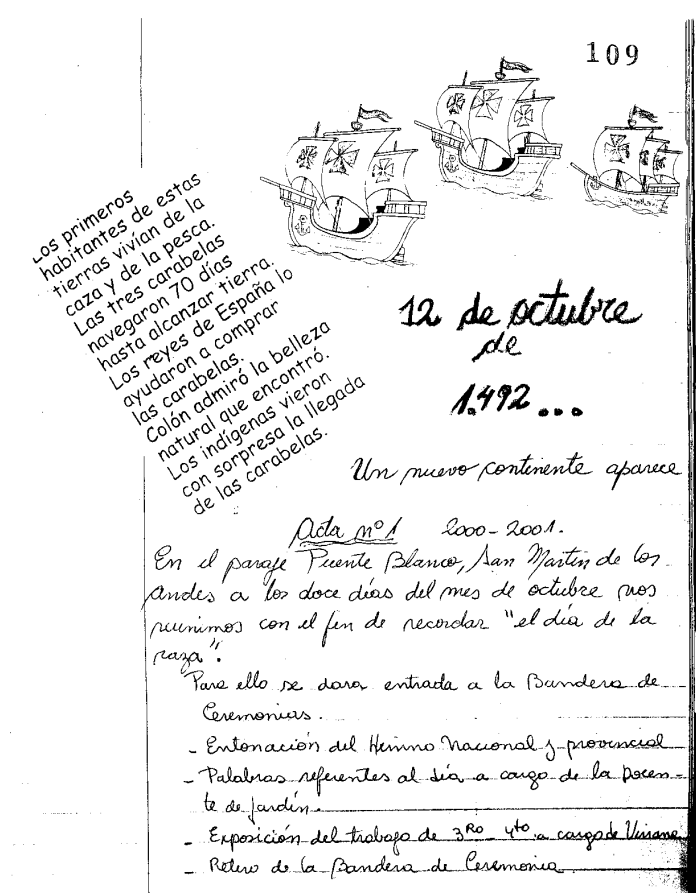 109
Los primeros
habitantes de estas
tierras vivían de la
caza y de la pesca.
Las tres carabelas
navegaron 70 días
hasta alcanzar tierra.
Los reyes de España lo
ayudaron a comprar
las carabelas.
Colón admiró la belleza
natural que encontró.
Los indígenas vieron
con sorpresa la llegada
de las carabelas.
12 de octubre
de
1.492...
Un nuevo continente aparece
Acta nº 1 2000-2001.
En el paraje Puente Blanco, San Martín de los
Andes a los doce días del mes de octubre nos
reunimos con el fin de recordar "el día de la
raza".
Para ello se dara entrada a la Bandera de
Ceremonias.
- Entonación del Himno Nacional y provincial
- Palabras referentes al día a cargo de la Docen-
te de Jardín.
- Exposición del trabajo de 3Ro - 4to a cargo de Viviana
- Retiro de la Bandera de Ceremonia.